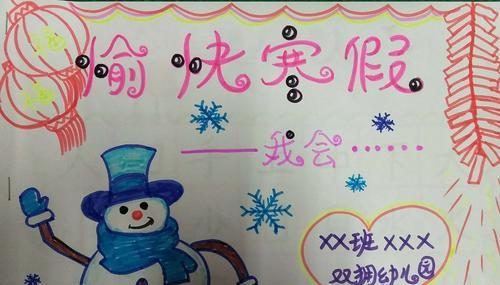 愉快寒假
——我会······
XX班 XXX
双拥幼儿园